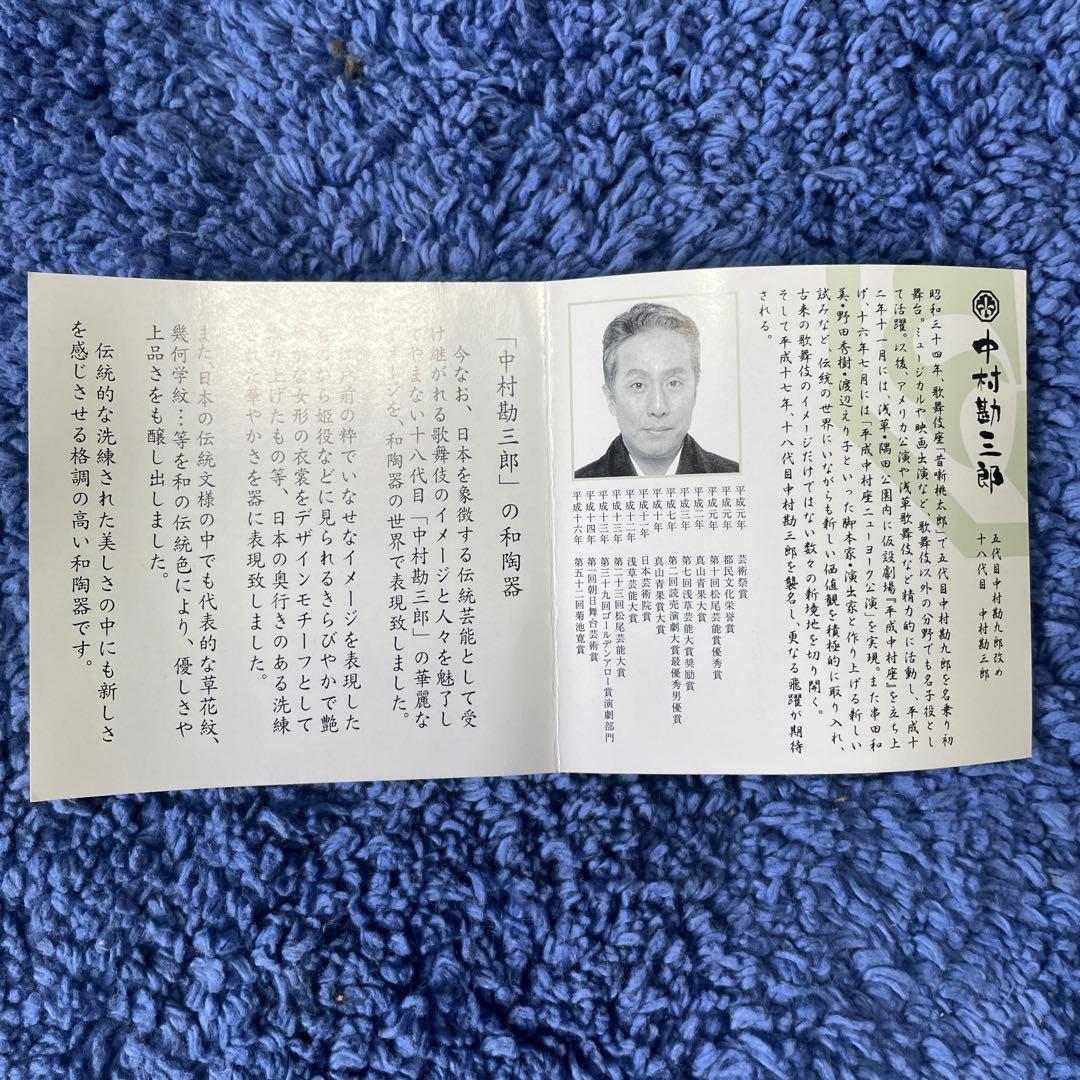 中村勘三郎
五代目中村勘九郎改め
十八代目 中村勘三郎
昭和三十四年、歌舞伎座「昔噺桃太郎」で五代目中村勘九郎を名乗り初
舞台。ミュージカルや映画出演など、歌舞伎以外の分野でも名子役とし
て活躍。以後、アメリカ公演や浅草歌舞伎など精力的に活動し、平成十
二年十一月には、浅草・隅田公園内に仮設劇場『平成中村座』を立ち上
げ、十六年七月には「平成中村座ニューヨーク公演」を実現。また串田和
美・野田秀樹・渡辺えり子といった脚本家・演出家と作り上げる新しい
試みなど、伝統の世界にいながらも新しい価値観を積極的に取り入れ、
古来の歌舞伎のイメージだけではない数々の新境地を切り開く。
そして平成十七年、十八代目中村勘三郎を襲名し、更なる飛躍が期待
される。
平成元年 芸術祭賞
平成元年 都民文化栄誉賞
平成元年 第十回松尾芸能賞優秀賞
平成二年 真山青果大賞
平成三年 第七回浅草芸能大賞奨励賞
平成七年 第二回読売演劇大賞最優秀男優賞
平成十年 真山青果大賞
平成十一年 日本芸術院賞
平成十二年 浅草芸能大賞
平成十三年 第二十三回松尾芸能大賞
平成十三年 第三十九回ゴールデンアロー賞演劇部門
平成十四年 第一回朝日舞台芸術賞
平成十六年 第五十二回菊池寛賞
「中村勘三郎」の和陶器
今なお、日本を象徴する伝統芸能として受
け継がれる歌舞伎のイメージと人々を魅了し
てやまない十八代目「中村勘三郎」の華麗な
イメージを、和陶器の世界で表現致しました。
前の粋でいなせなイメージを表現した
ら姫役などに見られるきらびやかで艶
な女形の衣裳をデザインモチーフとして
上げたもの等、日本の奥行きのある洗練
された華やかさを器に表現致しました。
また日本の伝統文様の中でも代表的な草花紋、
幾何学紋…等を和の伝統色により、優しさや
上品さをも醸し出しました。
伝統的な洗練された美しさの中にも新しさ
を感じさせる格調の高い和陶器です。